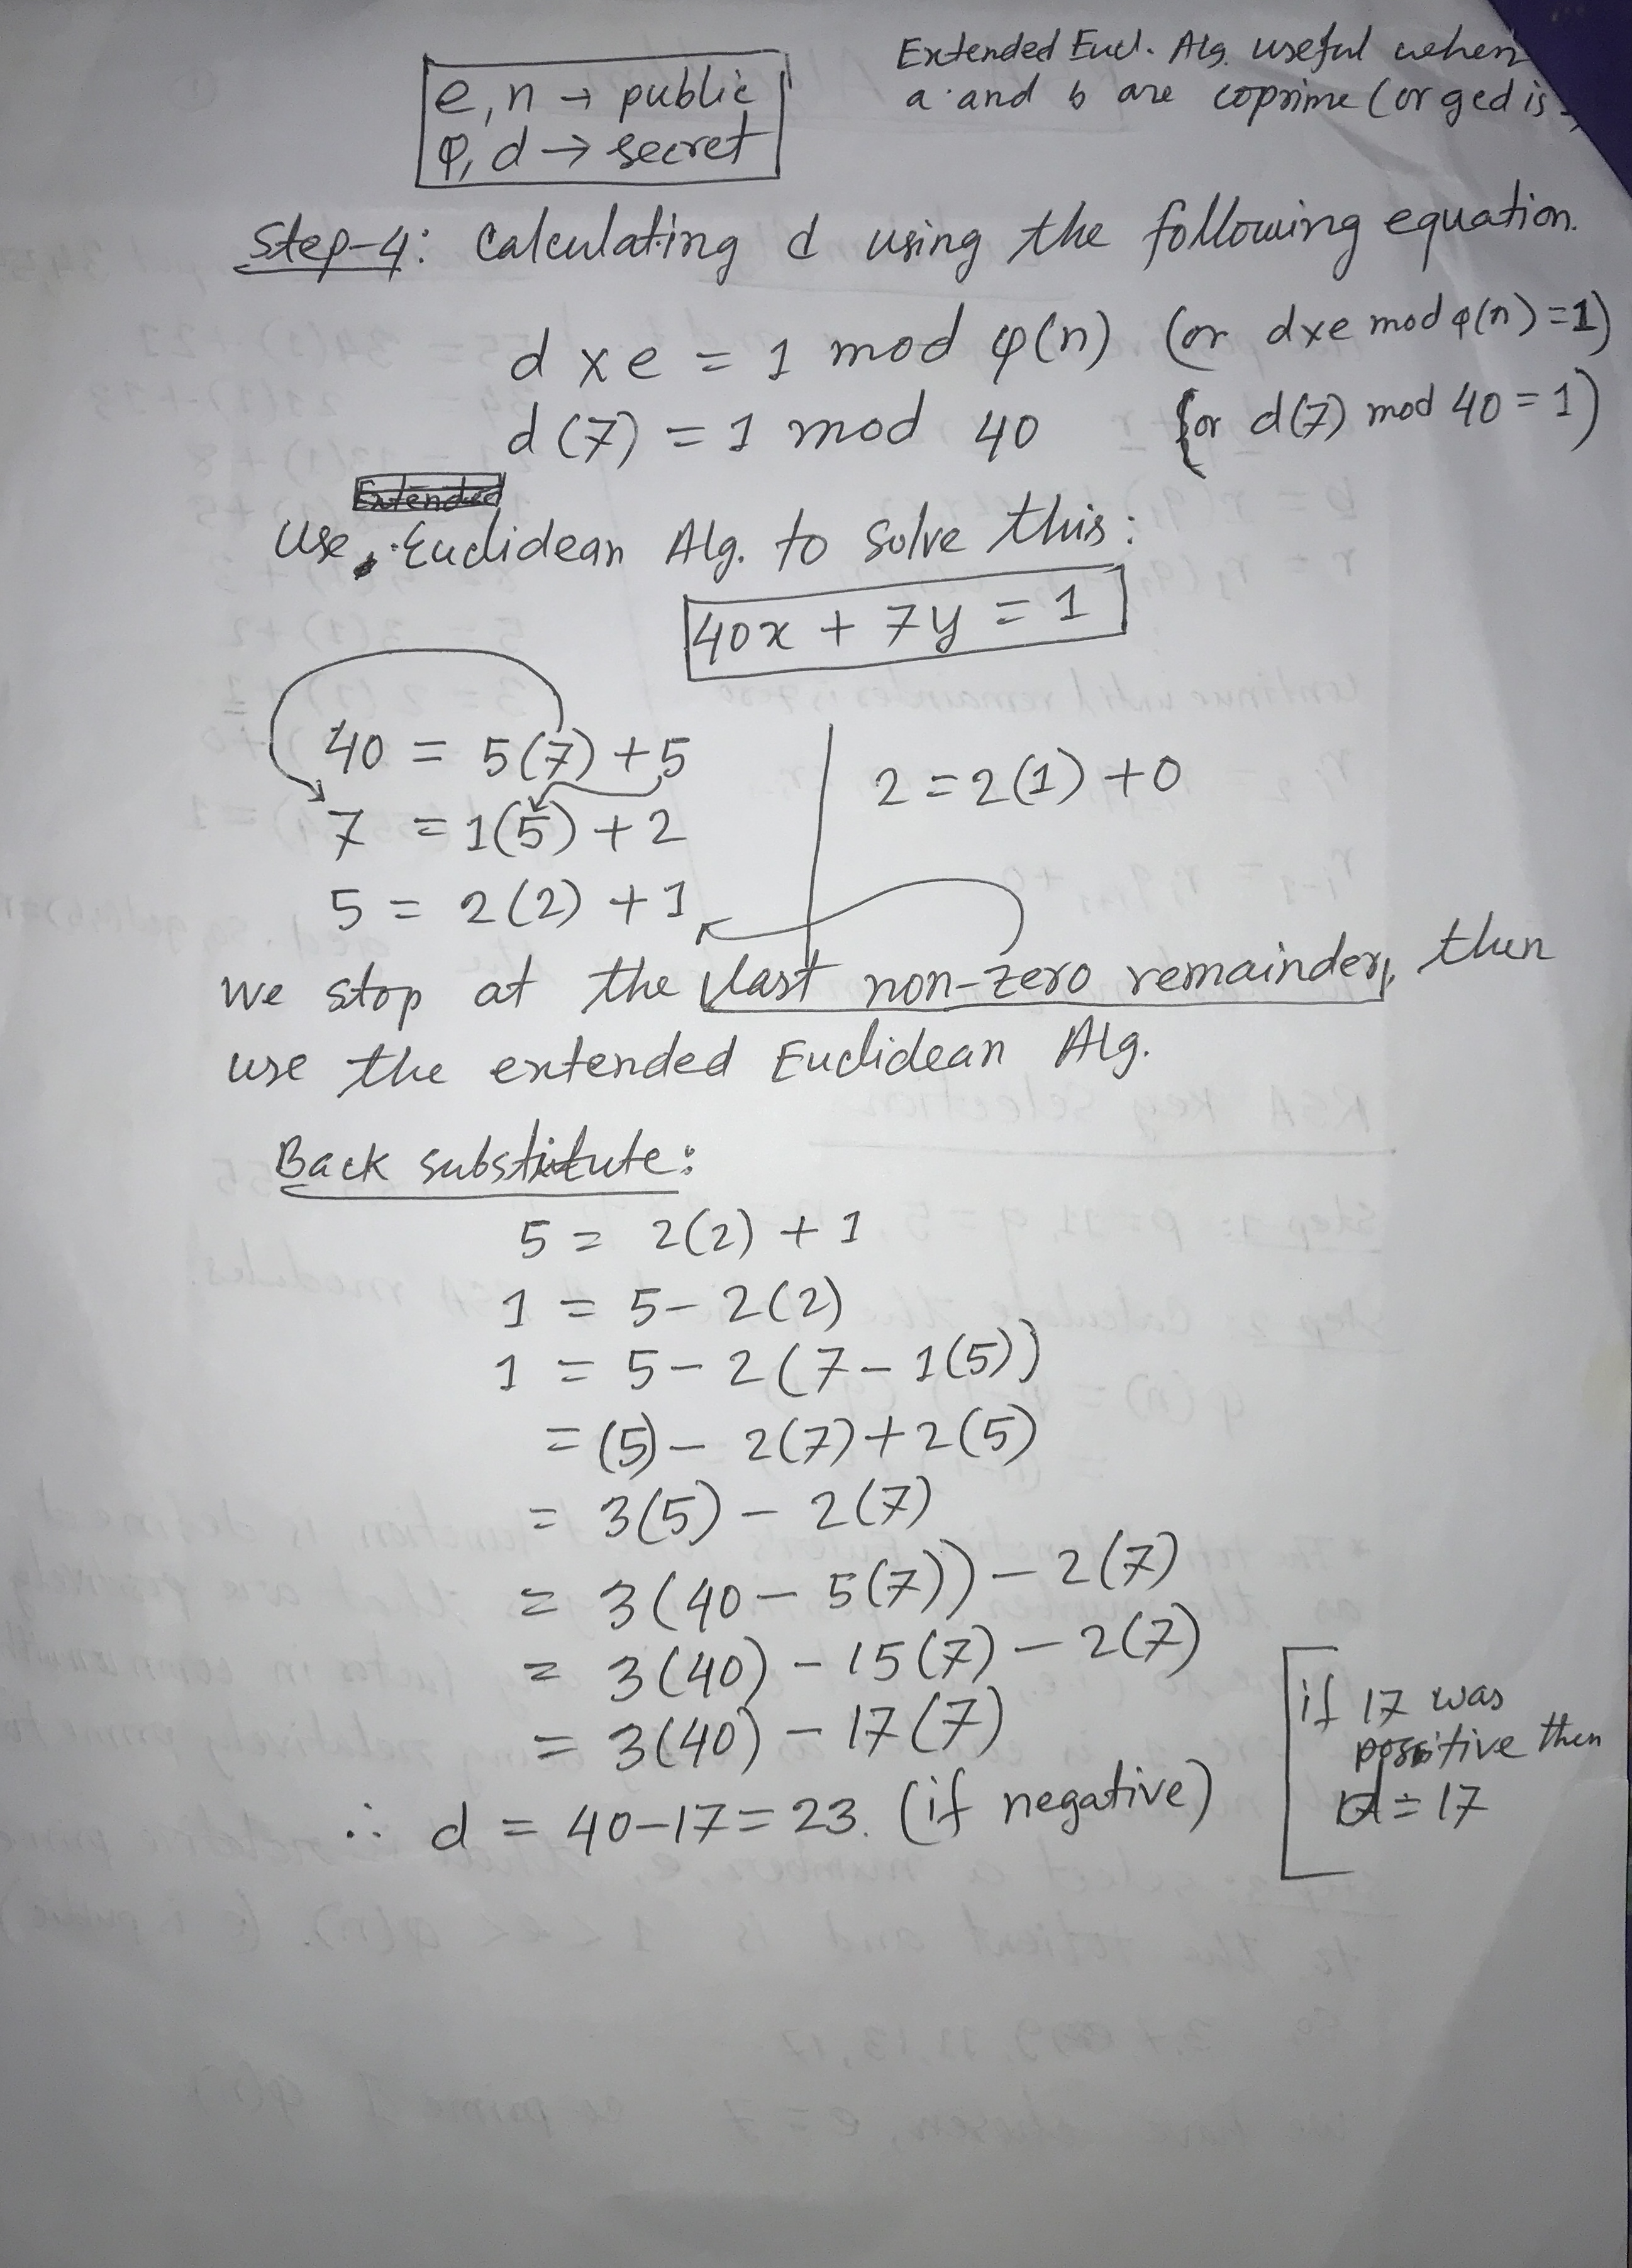 e, n → public
φ, d → secret
Extended Eucl. Alg. useful when
a and b are coprime (or gcd is
Step-4: Calculating d using the following equation.
d x e = 1 mod φ(n) (or dxe mod φ(n) = 1)
d(7) = 1 mod 40 (or d(7) mod 40 = 1)
Extended
Use Euclidean Alg. to solve this:
40x + 7y = 1
40 = 5(7) + 5
7 = 1(5) + 2
5 = 2(2) + 1
2 = 2(1) + 0
we stop at the last non-zero remainder, then
use the extended Euclidean Alg.
Back substitute:
5 = 2(2) + 1
1 = 5 - 2(2)
1 = 5 - 2(7 - 1(5))
= (5) - 2(7) + 2(5)
= 3(5) - 2(7)
= 3(40 - 5(7)) - 2(7)
= 3(40) - 15(7) - 2(7)
= 3(40) - 17(7)
∴ d = 40-17 = 23. (if negative)
if 17 was
positive then
d = 17